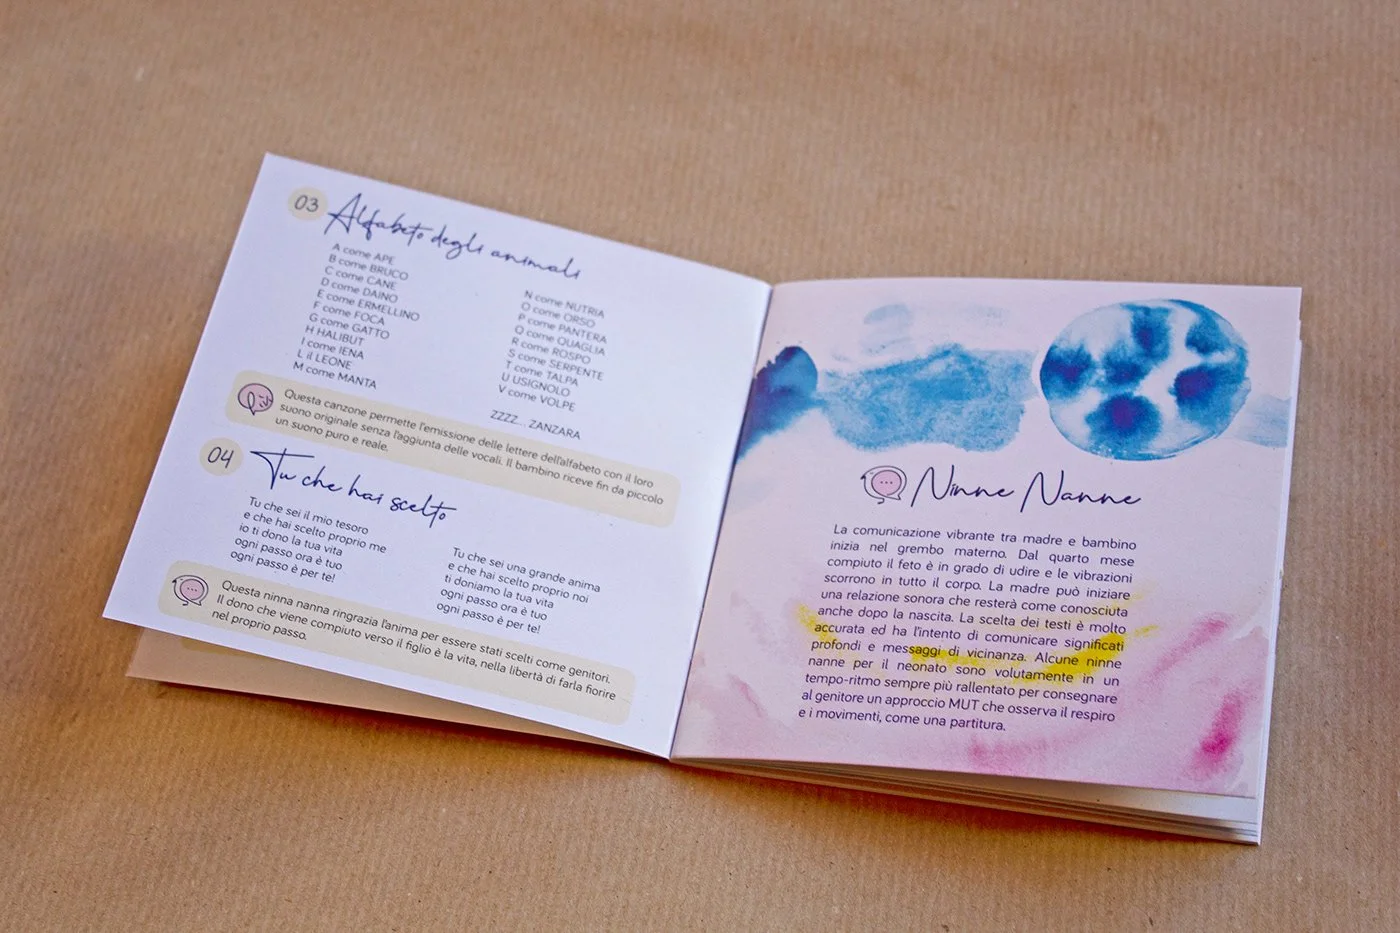 03
Alfabeto degli animali
A come APE
B come BRUCO
C come CANE
D come DAINO
E come ERMELLINO
F come FOCA
G come GATTO
H HALIBUT
I come IENA
L il LEONE
M come MANTA
N come NUTRIA
O come ORSO
P come PANTERA
Q come QUAGLIA
R come ROSPO
S come SERPENTE
T come TALPA
U USIGNOLO
V come VOLPE
ZZZZ... ZANZARA
Questa canzone permette l'emissione delle lettere dell'alfabeto con il loro
suono originale senza l'aggiunta delle vocali. Il bambino riceve fin da piccolo
un suono puro e reale.
04
Tu che hai scelto
Tu che sei il mio tesoro
e che hai scelto proprio me
io ti dono la tua vita
ogni passo ora è tuo
ogni passo è per te!
Tu che sei una grande anima
e che hai scelto proprio noi
ti doniamo la tua vita
ogni passo ora è tuo
ogni passo è per te!
Questa ninna nanna ringrazia l'anima per essere stati scelti come genitori.
Il dono che viene compiuto verso il figlio è la vita, nella libertà di farla fiorire
nel proprio passo.
Ninne Nanne
La comunicazione vibrante tra madre e bambino
inizia nel grembo materno. Dal quarto mese
compiuto il feto è in grado di udire e le vibrazioni
scorrono in tutto il corpo. La madre può iniziare
una relazione sonora che resterà come conosciuta
anche dopo la nascita. La scelta dei testi è molto
accurata ed ha l'intento di comunicare significati
profondi e messaggi di vicinanza. Alcune ninne
nanne per il neonato sono volutamente in un
tempo-ritmo sempre più rallentato per consegnare
al genitore un approccio MUT che osserva il respiro
e i movimenti, come una partitura.